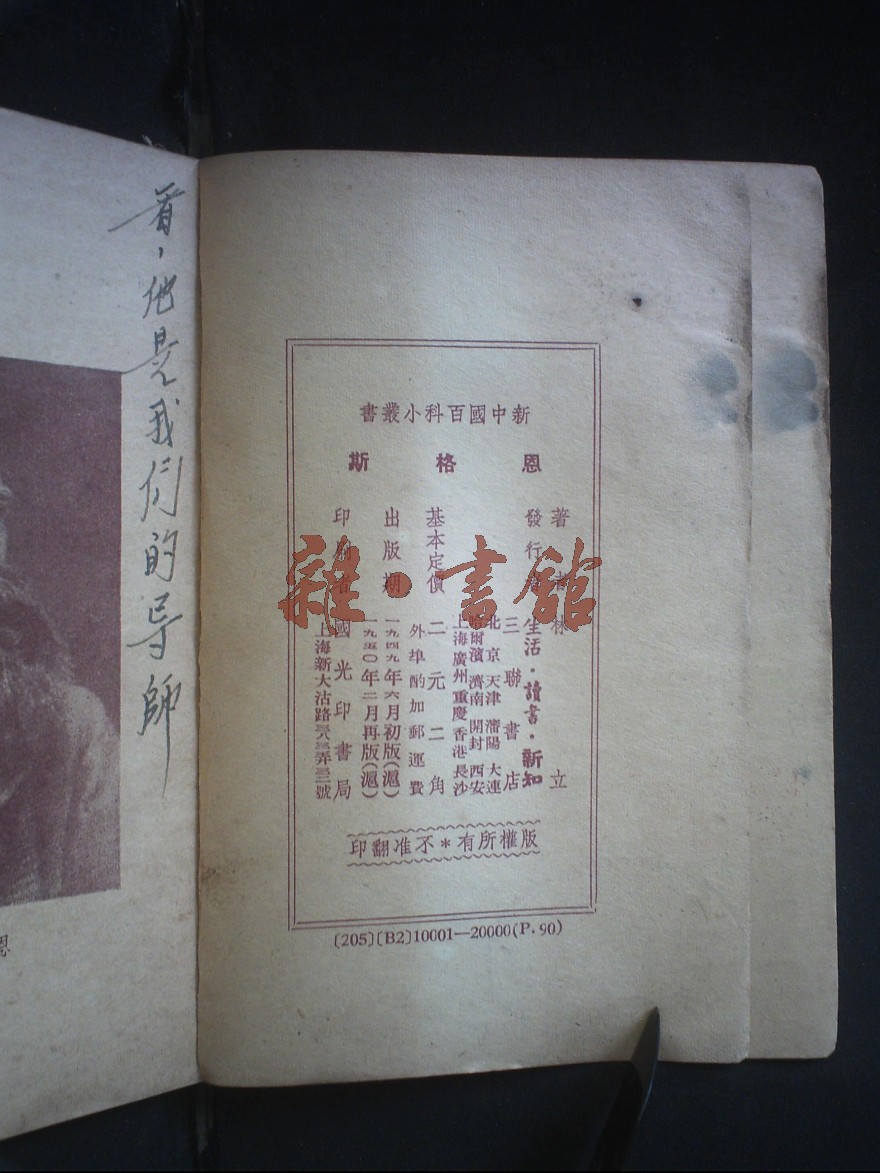 看，他是我们的导師
新中國百科小叢書
恩格斯
著者 林立
發行者 生活·讀書·新知
三聯書店
北京 天津 瀋陽 大連
哈爾濱 濟南 開封 西安
上海 廣州 重慶 香港 長沙
基本定價 二元二角
外埠酌加郵運費
出版期 一九四九年六月初版(滬)
一九五〇年二月再版(滬)
印刷者 國光印書局
上海新大沽路
版權所有*不准翻印
〔205〕〔B2〕10001—20000(P.90)
恩
雜·書館